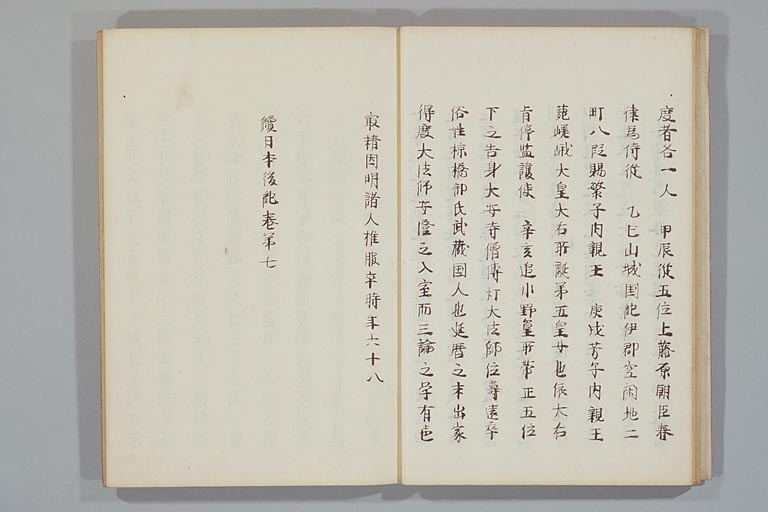 度者各一人　甲辰従五位上藤原朝臣春
津為侍従　乙巳山城国紀伊郡空閑地二
町八段賜繁子内親王　庚戌芳子内親王
薨嵯峨大皇大后所誕第五皇女也依大后
肯停監護使　辛亥追小野篁所帯正五位
下之告身大安寺僧傳灯大法師位壽遠卒
俗姓椋橋部氏武蔵国人也延暦之末出家
得度大法師安澄之入室而三論之学有色
最精因明諸人推服卒時年六十八
續日本後紀巻第七